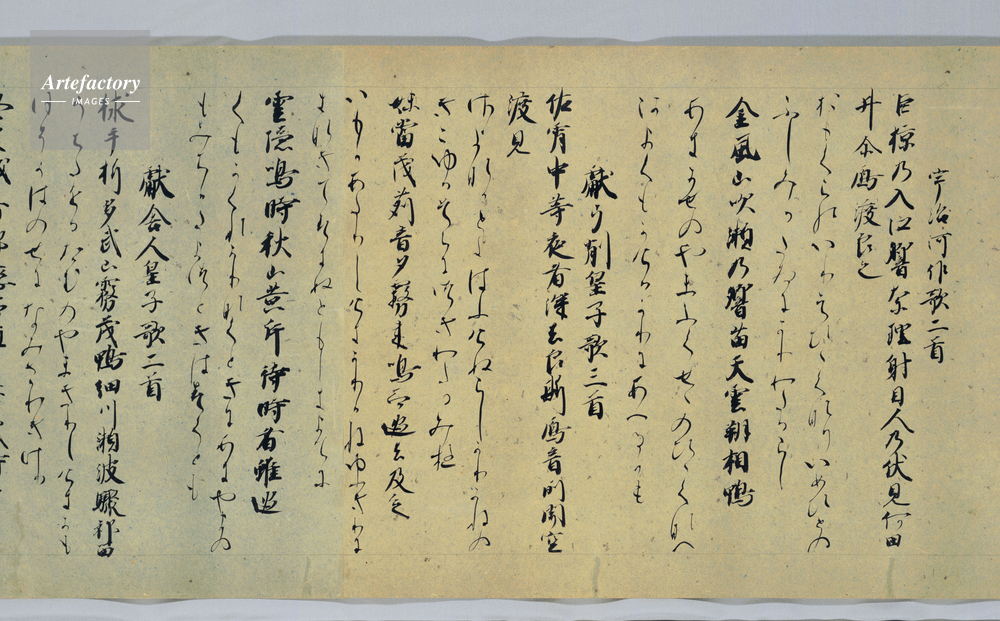 宇治河作歌二首
巨椋乃入江響奈理射目人乃伏見何田
井尓鴈渡良之
おほくらのいりえひゝくなりいめひとの
ふしみかたゐにかりわたるらし
金風山吹瀬乃響苗天雲翔相鴨
あきかせのやまふくせゝのひゝくなへ
くもかけるかりにあへるかも
献弓削皇子歌三首
佐宵中等夜者深去良斯鴈音所聞空
渡見
さよなかとよはふけぬらしかりかねの
きこゆるそらにつきわたるみゆ
妹當茂苅音夕霧来鳴而過去及乏
いもかあたりしけきかりかねゆふきりに
きなきてすきぬともしきまてに
雲隠鳴時秋山黄片待時者雖過
くもかくれかりなくときにあきやまの
もみちかたまつときはすくとも
献舎人皇子歌二首
捄手折多武山霧茂鴨細川瀬波驟祁留
うちたをりたむのやまきりしけきかも
ほそかはのせになみさわきけ
Artefactory
IMAGES